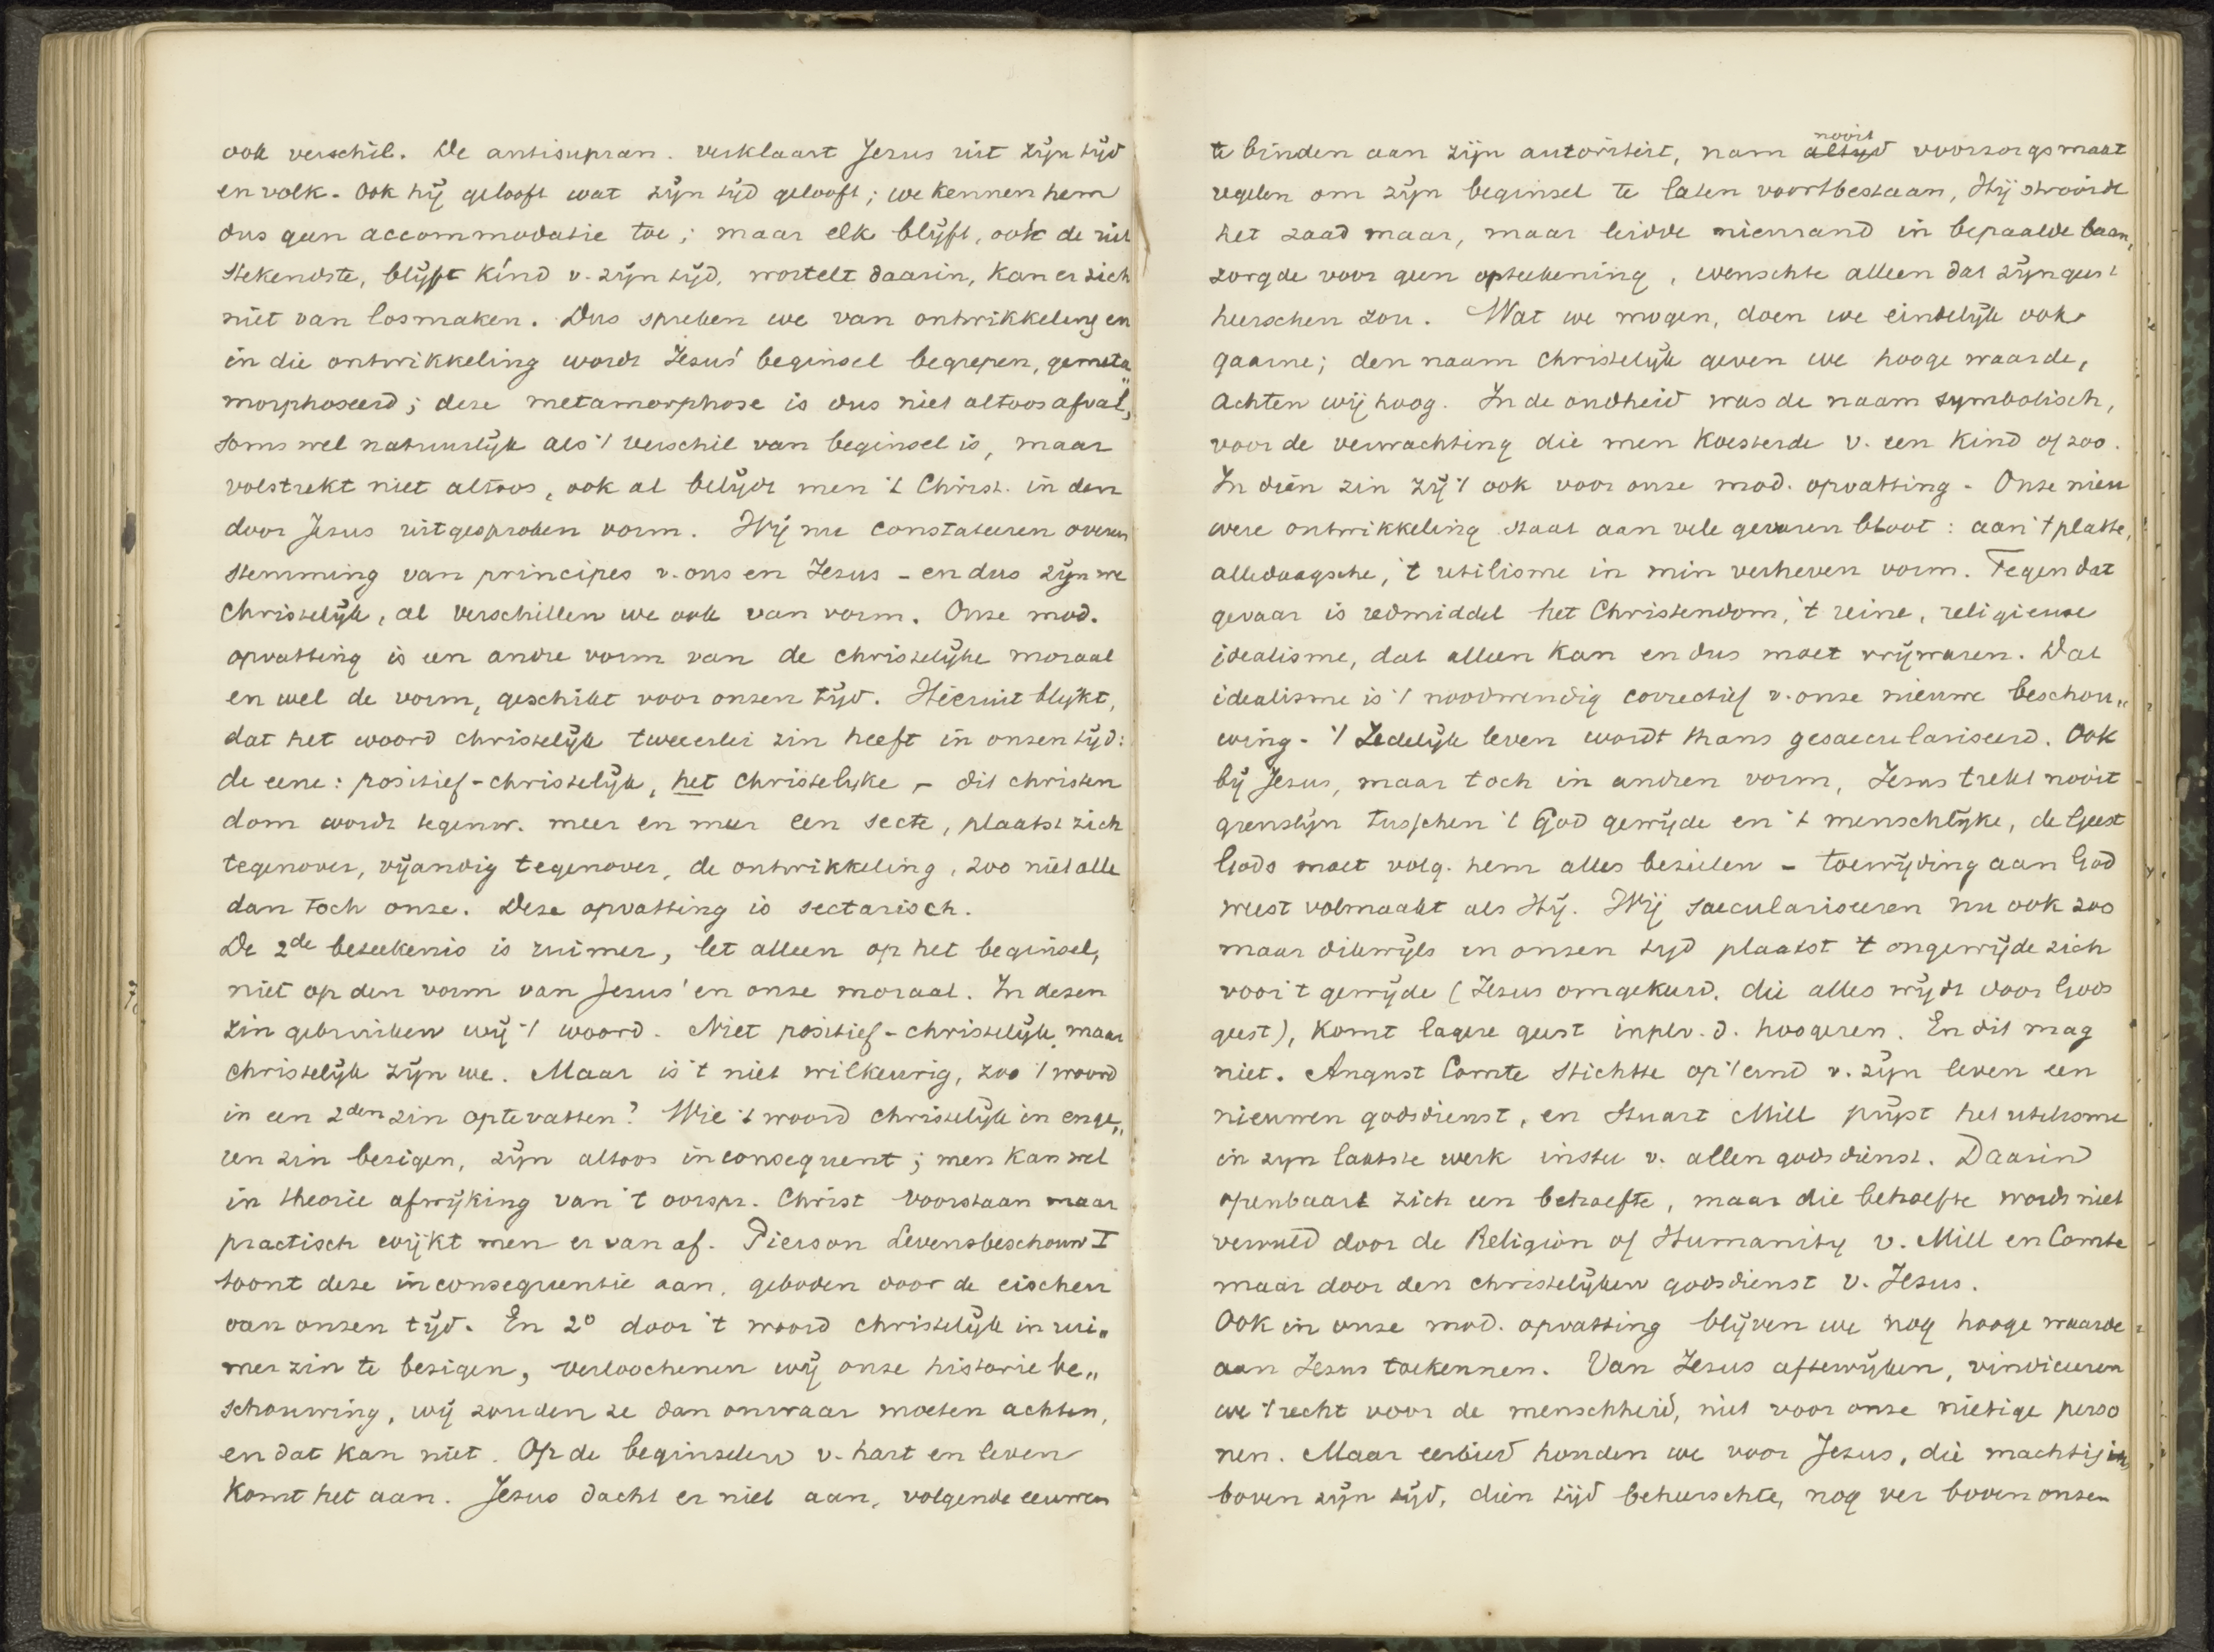 ook verschil. De antisupran. verklaart Jezus uit zijn tijd
en volk. Ook hij gelooft wat zijn tijd gelooft; we kennen hem
dus geen accommodatie toe; maar elk blijft, ook de uit
stekendste, blijft kind v. zijn tijd, wortelt daarin, kan er zich
niet van losmaken. Dus spreken we van ontwikkeling en
in die ontwikkeling wordt Jezus' beginsel begrepen, gemeta„
morphoseerd; deze metamorphose is dus niet altoos afval,
soms wel natuurlijk als 't verschil van beginsel is, maar
volstrekt niet altoos, ook al belijdt men 't Christ. in den
door Jezus uitgesproken vorm. Wij nu constateeren overeen
stemming van principes v. ons en Jezus - en dus zijn we
christelijk, al verschillen we ook van vorm. Onze mod.
opvatting is een andre vorm van de christelijke moraal
en wel de vorm, geschikt voor onzen tijd. Hieruit blijkt,
dat het woord christelijk tweeerlei zin heeft in onzen tijd:
de eene: positief-christelijk, het christelijke - dit christen
dom wordt tegenw. meer en meer een secte, plaatst zich
tegenover, vijandig tegenover, de ontwikkeling, zoo niet alle
dan toch onze. Deze opvatting is sectarisch.
De 2de beteekenis is ruimer, let alleen op het beginsel,
niet op den vorm van Jezus' en onze moraal. In dezen
zin gebruiken wij 't woord. Niet positief-christelijk, maar
christelijk zijn we. Maar is 't niet wilkeurig, zoo 't woord
in een 2den zin optevatten? Wie 't woord christelijk in enge„
ren zin bezigen, zijn altoos inconsequent; men kan wel
in theorie afwijking van 't oorspr. Christ voorstaan maar
practisch wijkt men er van af. Pierson Levensbeschouw I
toont deze inconsequentie aan, geboden door de eischen
van onzen tijd. En 2o door 't woord christelijk in rui„
mer zin te bezigen, verloochenen wij onze historie be„
schouwing, wij zouden ze dan onwaar moeten achten,
en dat kan niet. Op de beginselen v. hart en leven
komt het aan. Jezus dacht er niet aan, volgende eeuwen
te binden aan zijn autoriteit, nam altijd nooit voorzorgsmaat
regelen om zijn beginsel te laten voortbestaan, Hij strooide
het zaad maar, maar leidde niemand in bepaalde baan,
zorgde voor geen opteekening, wenschte alleen dat zijn geest
heerschen zou. Wat we mogen, doen we eindelijk ook
gaarne; den naam christelijk geven we hooge waarde,
achten wij hoog. In de oudheid was de naam symbolisch,
voor de verwachting die men koesterde v. een kind of zoo.
In dien zin zij 't ook voor onze mod. opvatting. Onze nieu
were ontwikkeling staat aan vele gevaren bloot: aan 't platte,
alledaagsche, 't utilisme in min verheven vorm. Tegen dat
gevaar is redmiddel het Christendom, 't reine, religieuse
idealisme, dat alleen kan en dus moet vrijwaren. Dat
idealisme is 't noodwendig correctief v. onze nieuwe beschou„
wing. 't Zedelijk leven wordt thans gesaeculariseerd. Ook
bij Jezus, maar toch in andren vorm, Jezus trekt nooit
grenslijn tusschen 't God gewijde en 't menschlijke, de Geest
Gods moet volg. hem alles bezielen - toewijding aan God
weest volmaakt als Hij. Wij saeculariseeren nu ook zoo
maar dikwijls in onzen tijd plaatst 't ongewijde zich
voor 't gewijde (Jezus omgekeerd, die alles wijdt door Gods
geest), komt lagere geest inpl. v. d. hoogeren. En dit mag
niet. August Comte stichtte op 't eind v. zijn leven een
nieuwen godsdienst, en Stuart Mill prijst het utilisme
in zijn laatste werk insteê v. allen godsdienst. Daarin
openbaart zich een behoefte, maar die behoefte wordt niet
vervuld door de Religion of Humanity v. Mill en Comte
maar door den christelijken godsdienst v. Jezus.
Ook in onze mod. opvatting blijven we nog hooge waarde
aan Jezus toekennen. Van Jezus aftewijken, vindiceeren
we 't recht voor de menschheid, niet voor onze nietige perso
nen. Maar eerbied houden we voor Jezus, die machtig
boven zijn tijd, dien tijd beheerschte, nog ver boven onzen